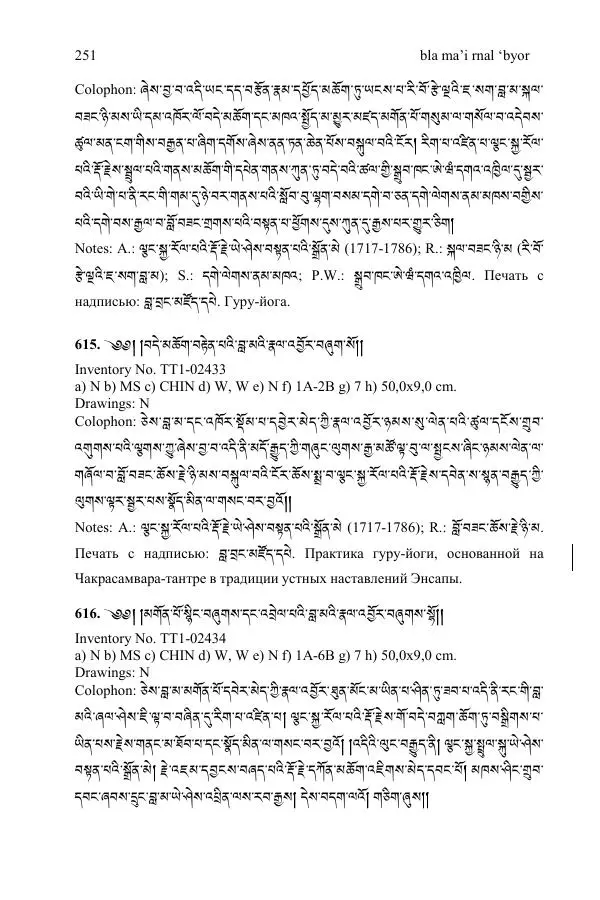 251 bla ma’i rnal ‘byor
Colophon: ཞེས་བྱ་བ་འདི་ཡང་དད་བརྩོན་རྣམ་དཔྱོད་མཆོག་ཏུ་ཡངས་པ་རི་བོ་རྩེ་ལྔའི་ཇ་སག་བླ་མ་སྐལ་
བཟང་ཉི་མས་ཡི་དམ་འཁོར་ལོ་བདེ་མཆོག་དང་མཁའ་སྤྱོད་མ་མྱུར་མཛད་མགོན་པོ་གསུམ་ལ་གསོལ་བ་འདེབས་
ཚུལ་མན་ངག་གིས་བརྒྱན་པ་ཞིག་དགོས་ཞེས་ནན་ཏན་ཆེན་པོས་བསྐུལ་བའི་ངོར། རིག་པ་འཛིན་པ་ལྕང་སྐྱ་རོལ་
པའི་རྡོ་རྗེས་སྤྲུལ་པའི་གནས་མཆོག་གི་དབེན་གནས་ཀུན་ཏུ་བདེ་བའི་ཚལ་གྱི་སྒྲུབ་ཁང་ཨེ་ཝཾ་དགའ་འཁྱིལ་དུ་སྦྱར་
བའི་ཡི་གེ་པ་ནི་རང་གི་གམ་དུ་ཉེ་བར་གནས་པའི་སློབ་བུ་ལྷག་བསམ་དགེ་བ་ཅན་དགེ་ལེགས་ནམ་མཁས་བགྱིས་
པའི་དགེ་བས་རྒྱལ་བ་བློ་བཟང་གྲགས་པའི་བསྟན་པ་ཕྱོགས་དུས་ཀུན་ཏུ་རྒྱས་པར་གྱུར་ཅིག།
Notes: A.: ལྕང་སྐྱ་རོལ་པའི་རྡོ་རྗེ་ཡེ་ཤེས་བསྟན་པའི་སྒྲོན་མེ (1717-1786); R.: སྐལ་བཟང་ཉི་མ (རི་བོ་
རྩེ་ལྔའི་ཇ་སག་བླ་མ); S.: དགེ་ལེགས་ནམ་མཁའ; P.W.: སྒྲུབ་ཁང་ཨེ་ཝཾ་དགའ་འཁྱིལ. Печать с
надписью: བླ་བྲང་མཛོད་དཔེ. Гуру-йога.
615. ༄༅། །བདེ་མཆོག་བརྟེན་པའི་བླ་མའི་རྣལ་འབྱོར་བཞུག་སོ།།
Inventory No. TT1-02433
a) N b) MS c) CHIN d) W, W e) N f) 1A-2B g) 7 h) 50,0x9,0 cm.
Drawings: N
Colophon: ཅེས་བླ་མ་དང་འཁོར་སྡོམ་པ་དབྱེར་མེད་ཀྱི་རྣལ་འབྱོར་ཉམས་སུ་ལེན་པའི་ཚུལ་དངོས་གྲུབ་
འགུགས་པའི་ལྕགས་ཀྱུ་ཞེས་བྱ་བ་འདི་ནི་མདོ་རྒྱུད་ཀྱི་གཞུང་ལུགས་རྒྱ་མཚོ་ལྟ་བུ་ལ་སྦྱངས་ཞིང་ཉམས་ལེན་ལ་
གཞོལ་བ་བློ་བཟང་ཆོས་རྗེ་ཉི་མས་བསྐུལ་བའི་ངོར་ཆོས་སྨྲ་བ་ལྕང་སྐྱ་རོལ་པའི་རྡོ་རྗེས་དབེན་ས་སྙན་བརྒྱུད་ཀྱི་
ལུགས་ལྟར་སྦྱར་བས་སྣོད་མིན་ལ་གསང་བར་བྱའོ།།
Notes: A.: ལྕང་སྐྱ་རོལ་པའི་རྡོ་རྗེ་ཡེ་ཤེས་བསྟན་པའི་སྒྲོན་མེ (1717-1786); R.: བློ་བཟང་ཆོས་རྗེ་ཉི་མ.
Печать с надписью: བླ་བྲང་མཛོད་དཔེ. Практика гуру-йоги, основанной на
Чакрасамвара-тантре в традиции устных наставлений Энсапы.
616. ༄༅། །མགོན་པོ་སྙིང་བཞུགས་དང་འབྲེལ་པའི་བླ་མའི་རྣལ་འབྱོར་བཞུགས་སྷོ།།
Inventory No. TT1-02434
a) N b) MS c) CHIN d) W, W e) N f) 1A-6B g) 7 h) 50,0x9,0 cm.
Drawings: N
Colophon: ཅེས་བླ་མ་མགོན་པོ་དབེར་མེད་ཀྱི་རྣལ་འབྱོར་ཐུན་མོང་མ་ཡིན་པ་ཤིན་ཏུ་ཟབ་པ་འདི་ནི་རང་གི་བླ་
མའི་ཞལ་ཤེས་ཇི་ལྟ་བ་བཞིན་དུ་རིག་པ་འཛིན་པ། ལྕང་སྐྱ་རོལ་པའི་རྡོ་རྗེས་གོ་བདེ་བཀླག་ཆོག་ཏུ་བསྒྲིགས་པ་
ཡིན་པས་རྗེས་གནང་མ་ཐོབ་པ་དང་སྣོད་མིན་ལ་གསང་བར་བྱའོ། །འདིའི་ལུང་བརྒྱུད་ནི། ལྕང་སྐྱ་སྤྲུལ་སྐུ་ཡེ་ཤེས་
བསྟན་པའི་སྒྲོན་མེ། རྗེ་འཇམ་དབྱངས་བཞད་པའི་རྡོ་རྗེ་དཀོན་མཆོག་འཇིགས་མེད་དབང་པོ། མཁས་ཤིང་གྲུབ་
དབང་ཞབས་དྲུང་བླ་མ་ཡེ་ཤེས་འཕྲིན་ལས་རབ་རྒྱས། དེས་བདག་ལའོ། གཅིག་ཞུས།།